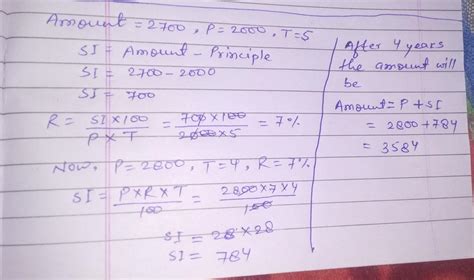 Amount = 2700, P = 2000, T = 5
SI = Amount - Principle
SI = 2700 - 2000
SI = 700
R = SI × 100 / P × T = 700 × 100 / 2000 × 5 = 7%
Now, P = 2800, T = 4, R = 7%
SI = P × R × T / 100 = 2800 × 7 × 4 / 100
SI = 28 × 28
SI = 784
After 4 years
the amount will
be
Amount = P + SI
= 2800 + 784
= 3584